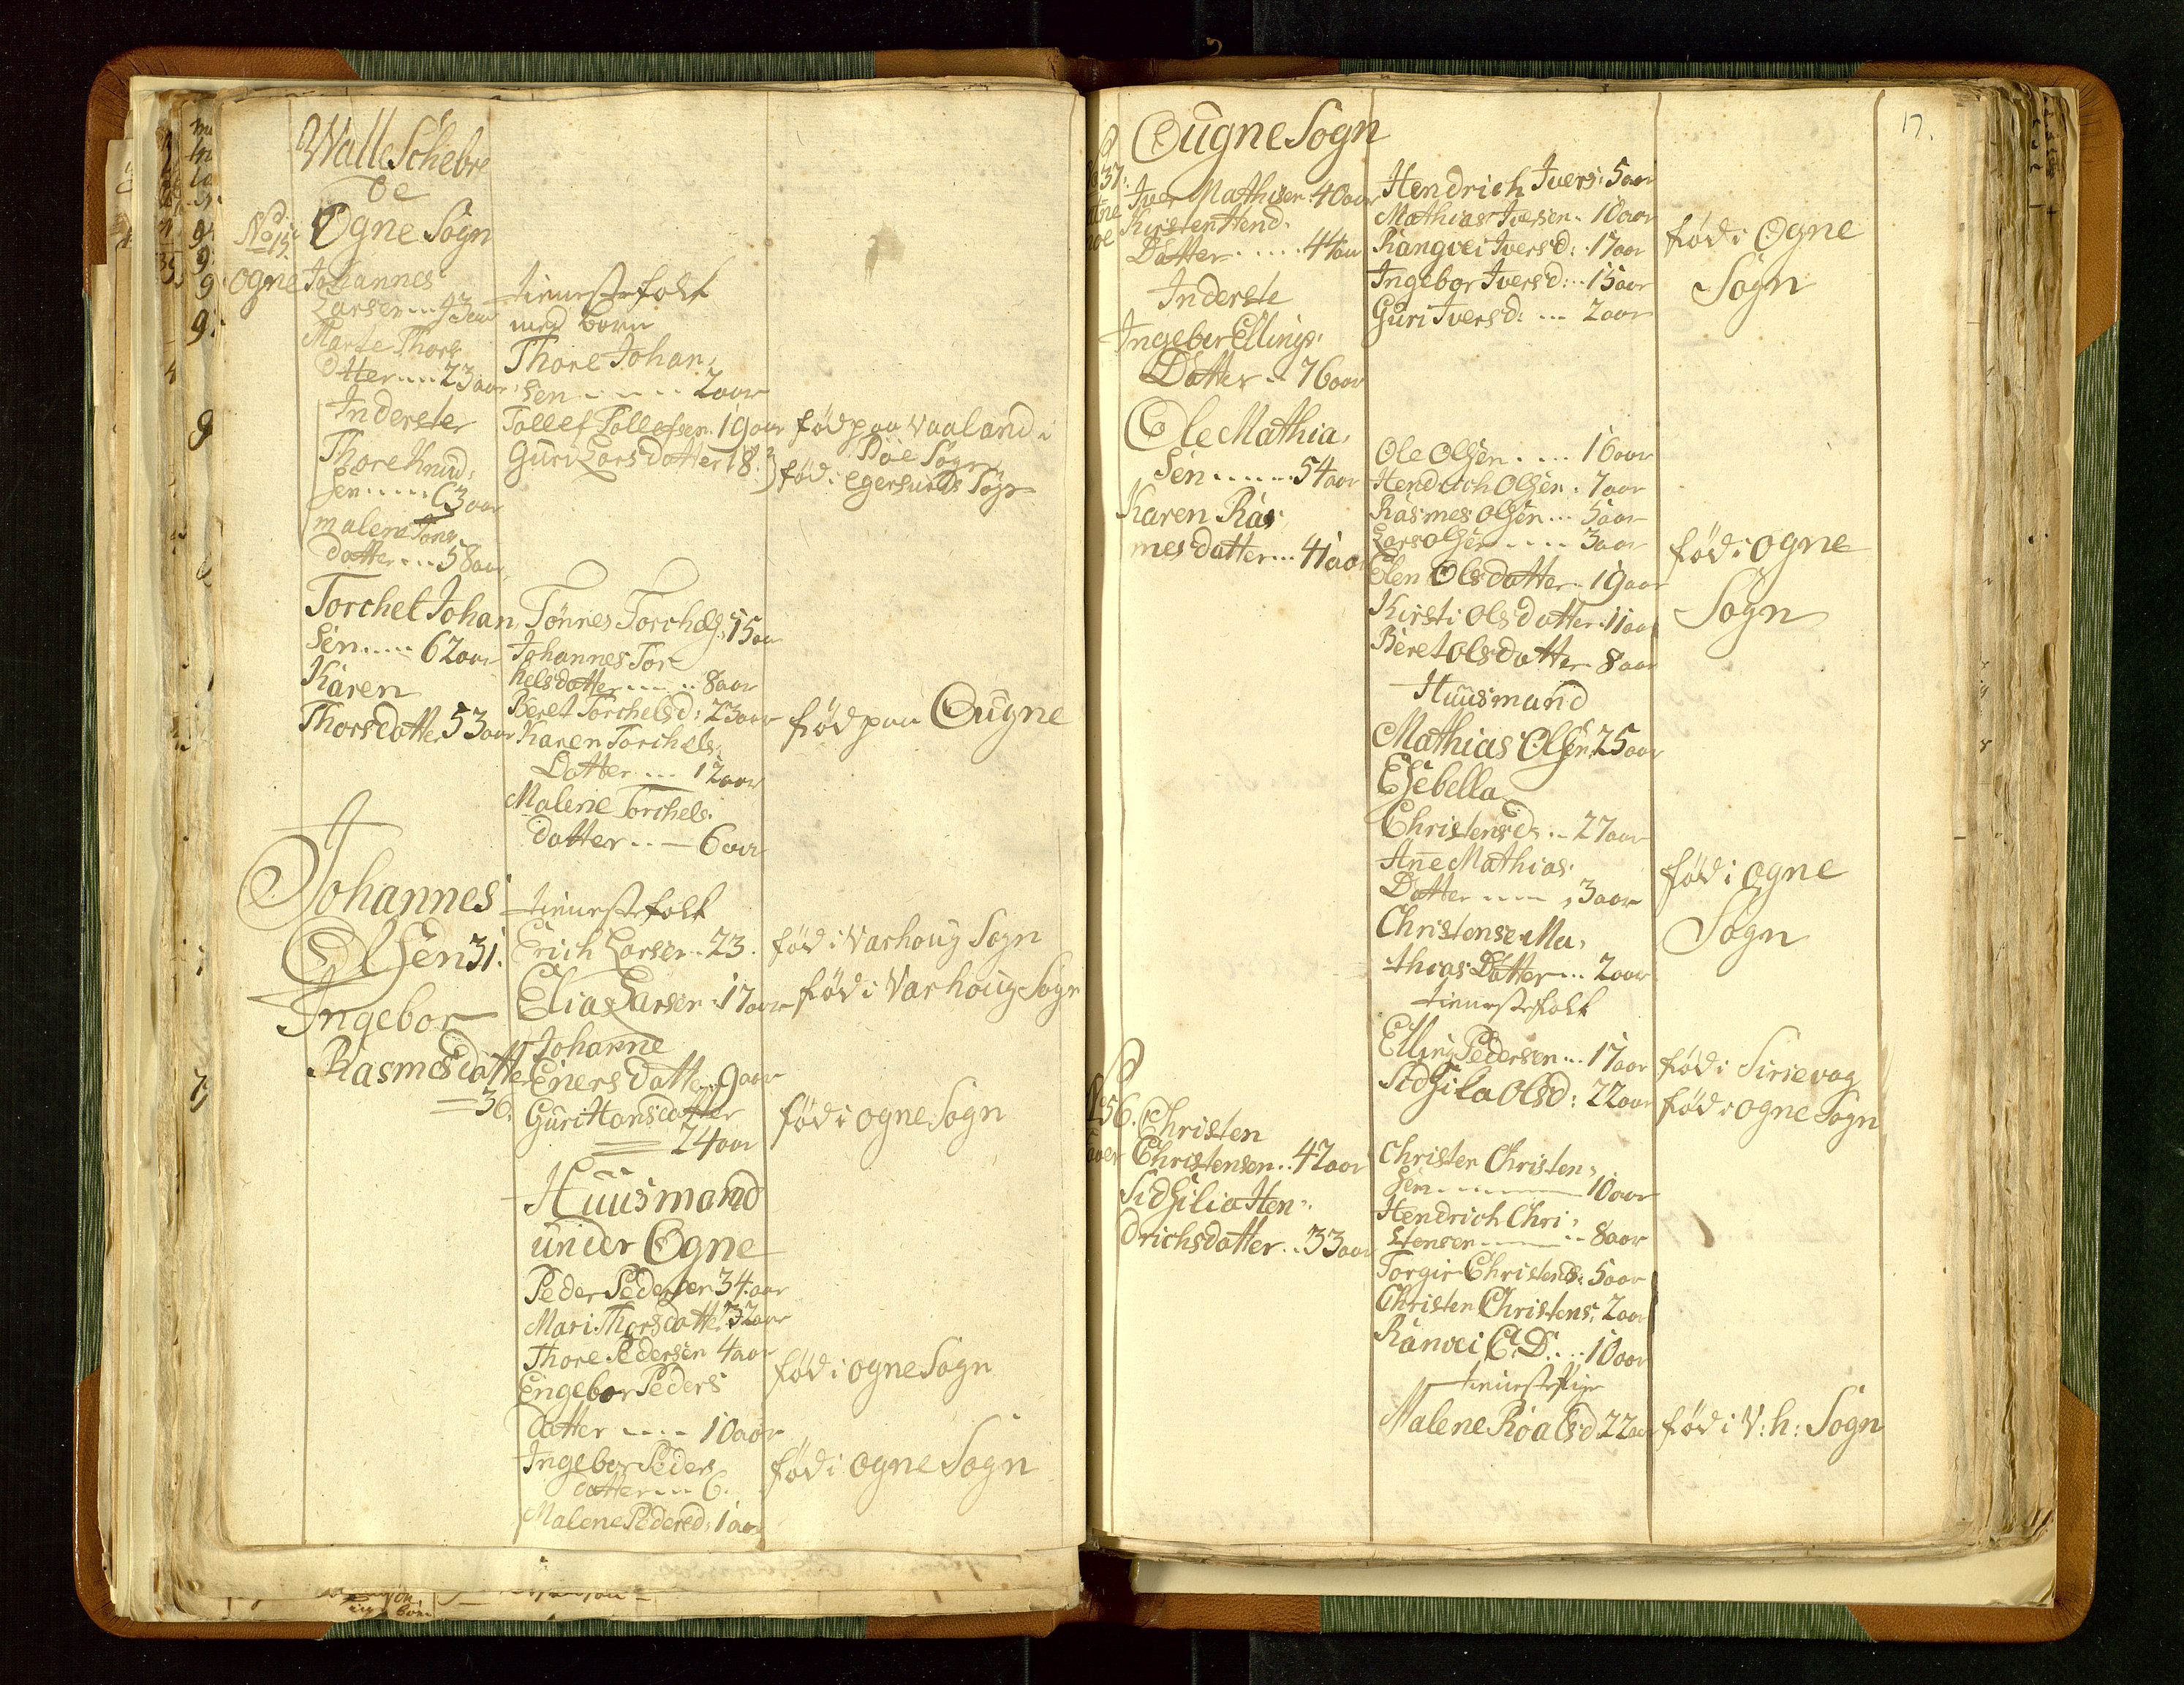 Walle Schebre
Oe
No 15. Ogne Sogn
Ogne Johannes
Larsen ... 43 aar
Marte Thors
dtter .... 23 aar
Inderster
Thore Knud:
sen ..... 63 aar
malene Tors
datter ... 58 aar
Torchel Johan
Sen ..... 62 aar
Karen
Thorsdatter 53 aar
Johannes
Olsen 31.
Ingebor
Rasmesdatter
36.
tienestefolk
med børn
Thore Johan,
sen - - - - - 2 aar
Tollef Tollefsen. 19 aar
Guri Larsdatter 18.
Tønnes Torchels: 15 aar
Johannes Tor
kelsdatter ..... 8 aar
Beret Torchelsd: 23 aar
Karen Torchels
Datter .... 12 aar
Malene Torchels
datter .. — 6 aar
tienestefolk
Erich Larsen .. 23.
Elias Larsen . 17 aar
Johanne
Einersdatter . 9 aar
Guri Hansdatter
24 aar
Huusmand
under Ogne
Peder Pedersen 34. aar
Mari Thorsdatter 32 aar
Thore Pedersen 4 aar
Engebor Peders
datter .... 10 aar
Ingebor Peders
datter ... 6.
Malene Pedersd: 1 aar
fød paa Vaaland i
Sogn
fød i Egersunds Sogn
fød paa Ougne
fød i Varhoug Sogn
fød i Varhoug Sogn
fød i ogne Sogn
fød i ogne Sogn
fød i ogne Sogn
17.
Ougne Sogn
37.
Iver Mathisen. 40 aar
Kirsten Hend:
Datter ..... 44 aar
Inderste
Ingebor Ellings:
Datter .. 76 aar
Ole Mathia,
Sen ....... 54 aar
Karen Ras
mesdatter ... 41 aar
56. Christen
Christensen .. 42 aar
Sidsilia Hen:
drichsdatter .. 33 aar
Hendrich Ivers: 5 aar
Mathias Iversen. 10 aar
Rangvei Iversd: 17 aar
Ingebor Iversd: .. 15 aar
Guri Iversd: ... 2 aar
Ole Olsen .... 16 aar
Hendrich Olsen . 7 aar
Rasmes Olsen ... 5 aar
Lars Olsen .... 3 aar
Elen Olsdatter .. 19 aar
Kirsti Olsdatter. 11 aar
Beret Olsdatter 8 aar
Huusmand
Mathias Olsen 25 aar
Esebella
Christensd. .. 27 aar
Ane Mathias
Datter ---- 3 aar
Christense Ma,
thias Datter ... 2 aar
tienestefolk
Elling Pedersen ... 17 aar
Sidsila Olsd: 22 aar
Christen Christen,
Sen ------ 10 aar
Hendrich Chri,
stensen ------ 8 aar
Torgier Christens: 5 aar
Christen Christens: 2 aar
Ranvei C. D. ... 10 aar
tienestepige
Malene Roalsd 22 aar
fød i Ogne
Sogn
fød i Ogne
Sogn
fød i ogne
Sogn
fød i Sirievag
fød i ogne Sogn
fød i V: h: Sogn